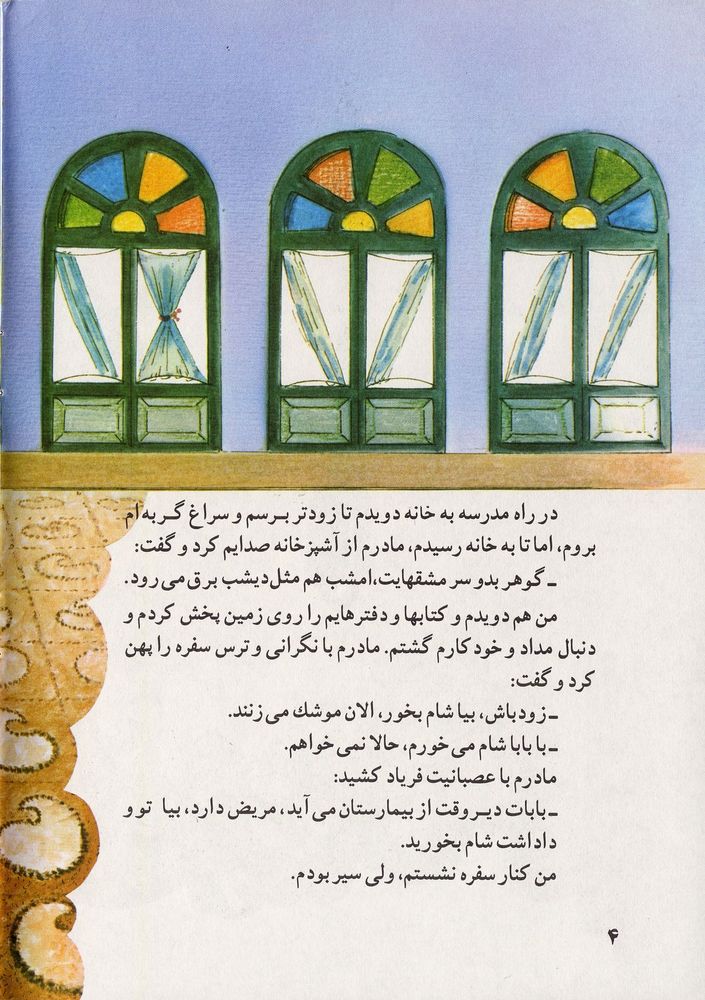 در راه مدرسه به خانه دویدم تا زودتر برسم و سراغ گربه‌ام
بروم، اما تا به خانه رسیدم، مادرم از آشپزخانه صدایم کرد و گفت:
ـ گوهر بدو سر مشقهایت، امشب هم مثل دیشب برق می‌رود.
من هم دویدم و کتابها و دفترهایم را روی زمین پخش کردم و
دنبال مداد و خودکارم گشتم. مادرم با نگرانی و ترس سفره را پهن
کرد و گفت:
ـ زود باش، بیا شام بخور، الان موشك می‌زنند.
ـ با بابا شام می‌خورم، حالا نمی‌خواهم.
مادرم با عصبانیت فریاد کشید:
ـ بابات دیروقت از بیمارستان می‌آید، مریض دارد، بیا تو و
داداشت شام بخورید.
من کنار سفره نشستم، ولی سیر بودم.
۴